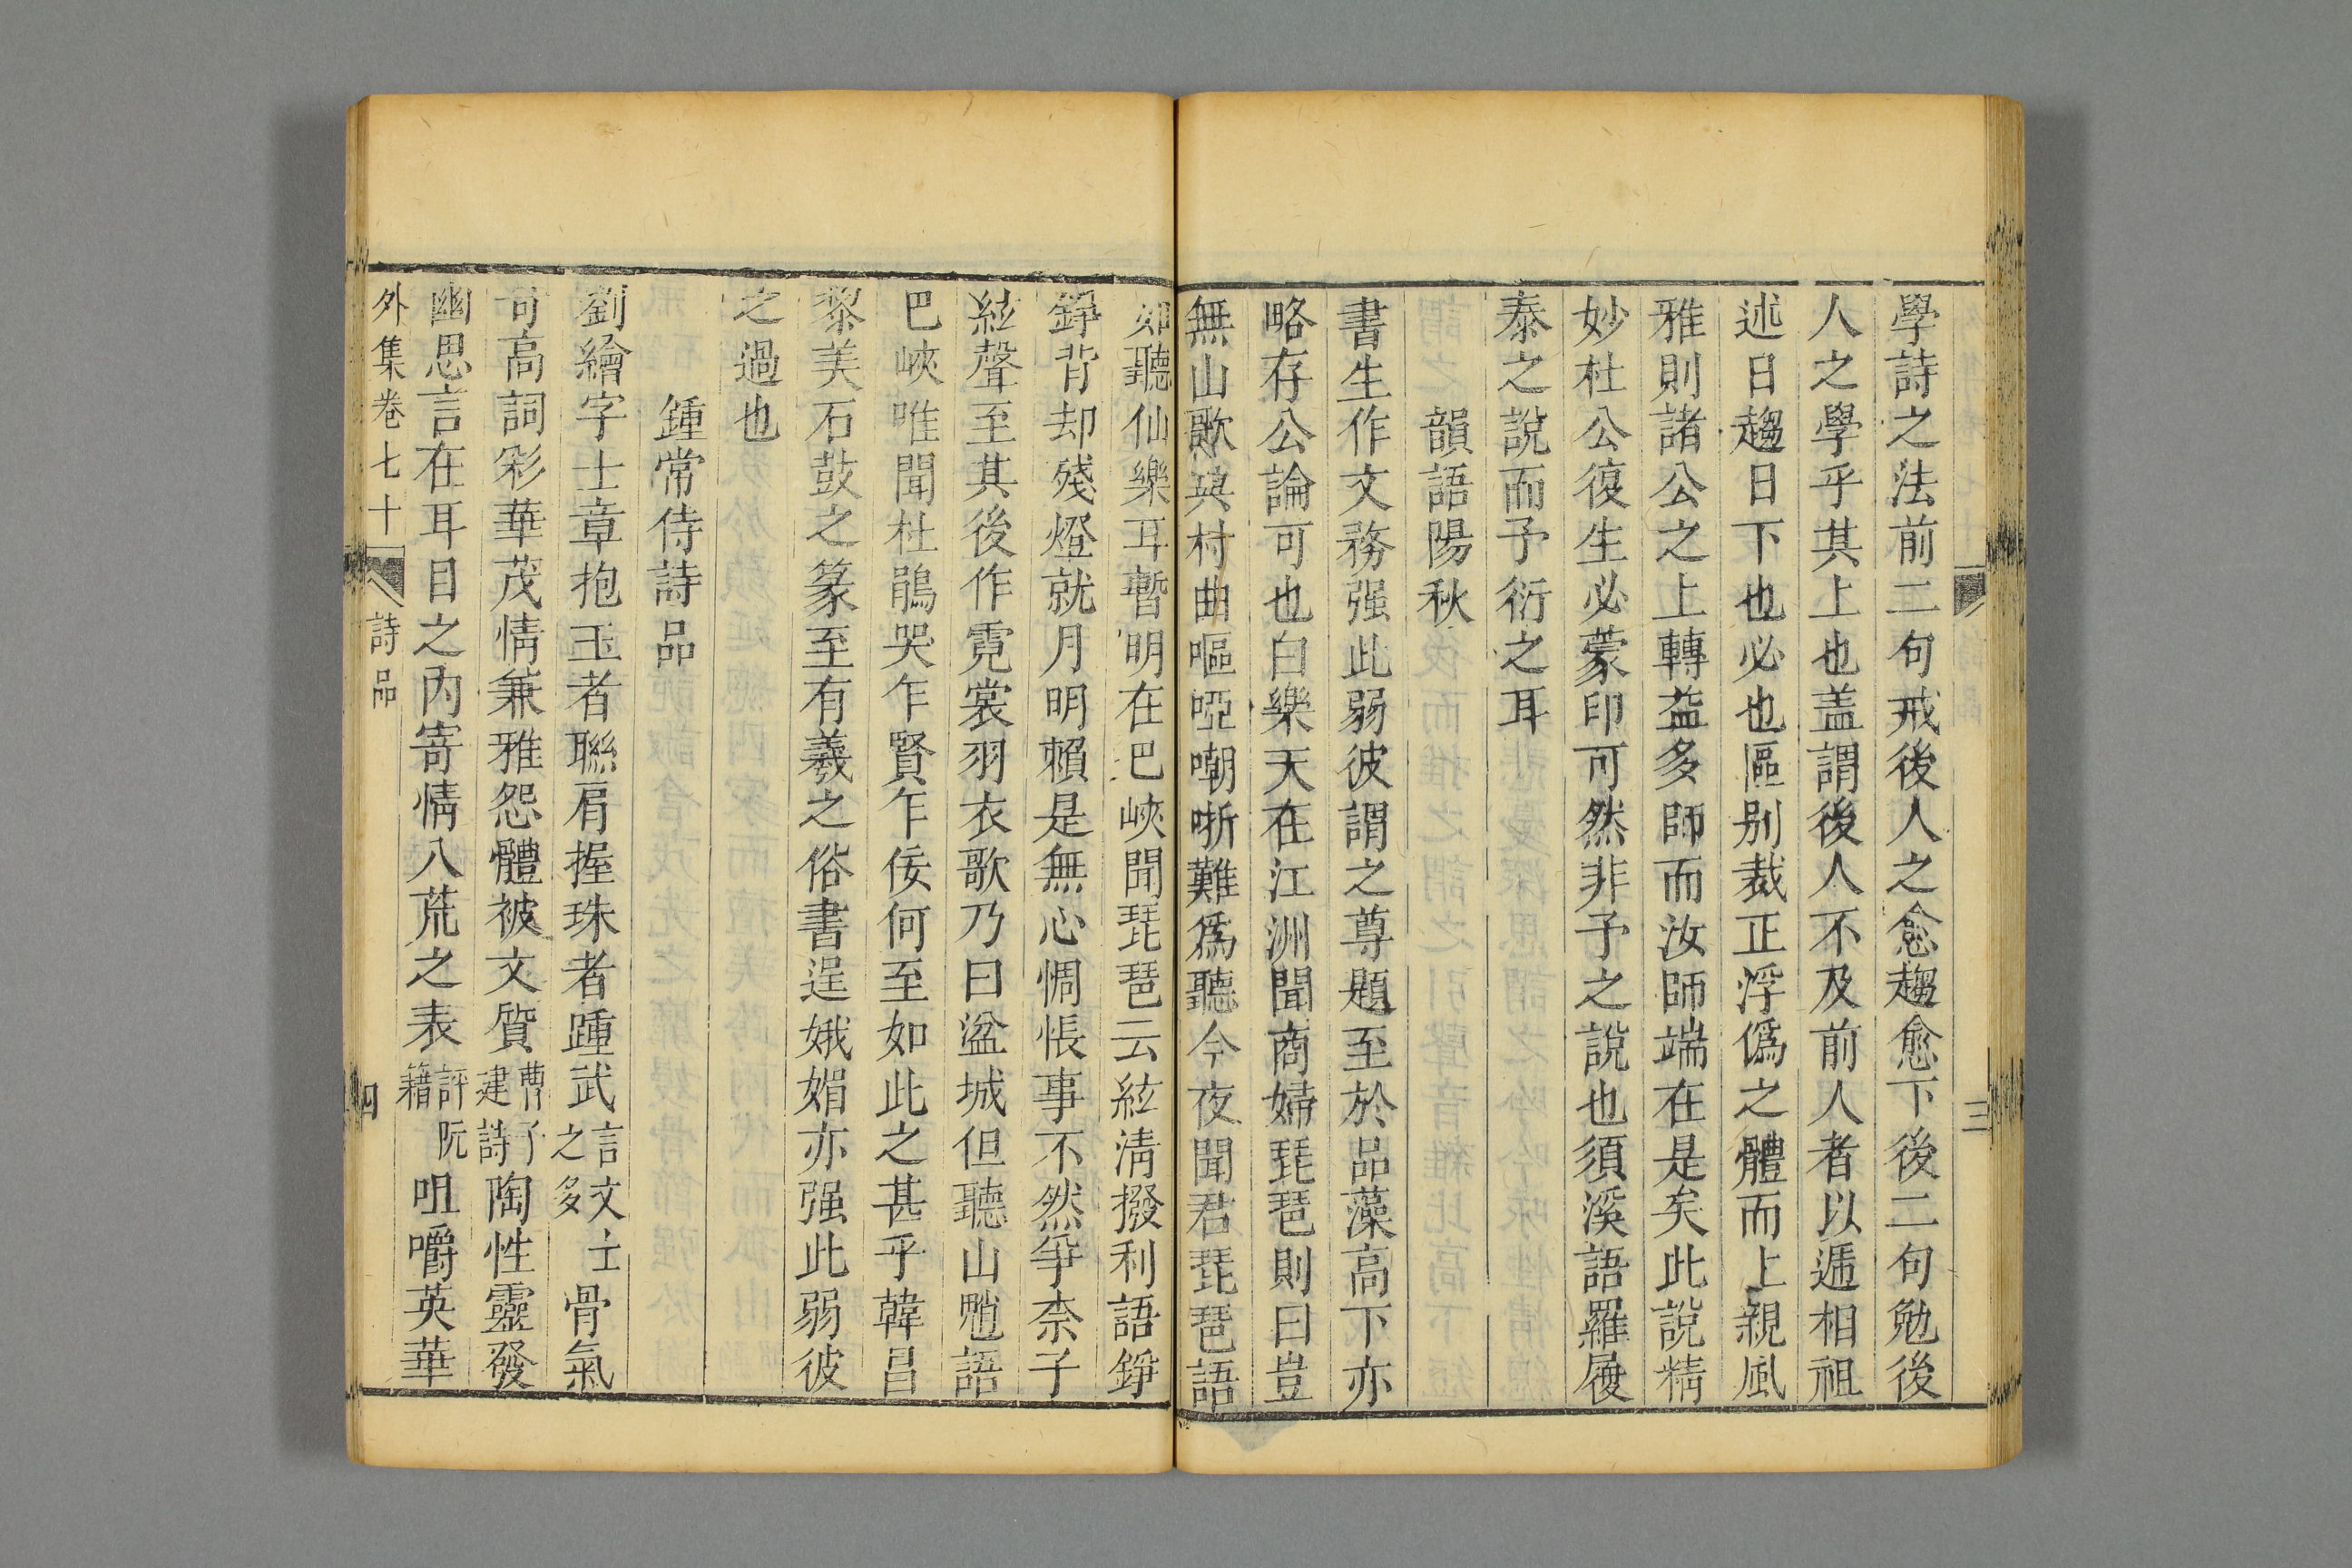 三
學詩之法前二句戒後人之愈趨愈下後二句勉後
人之學乎其上也盖謂後人不及前人者以遞相祖
述日趨日下也必也區别裁正浮僞之體而上親風
雅則諸公之上轉益多師而汝師端在是矣此說精
妙杜公復生必蒙印可然非予之說也須溪語羅履
泰之說而予衍之耳
韻語陽秋
書生作文務强此弱彼謂之尊題至於品藻高下亦
略存公論可也白樂天在江洲聞商婦琵琶則曰豈
無山歌與村曲嘔啞嘲哳難爲聽今夜聞君琵琶語
如聽仙樂耳暫明在巴峽聞琵琶云絃淸撥利語錚
錚背却殘燈就月明賴是無心惆悵事不然爭柰子
絃聲至其後作霓裳羽衣歌乃曰湓城但聽山魈語
巴峽唯聞杜鵑哭乍賢乍佞何至如此之甚乎韓昌
黎美石鼓之篆至有羲之俗書逞娥媚亦强此弱彼
之過也
鍾常侍詩品
劉繪字士章抱玉者聯肩握珠者踵武言文士之多骨氣
奇高詞彩華茂情兼雅怨體被文質曹子建詩陶性靈發
幽思言在耳目之內寄情八荒之表評阮籍咀嚼英華
外集卷七十 詩品 四